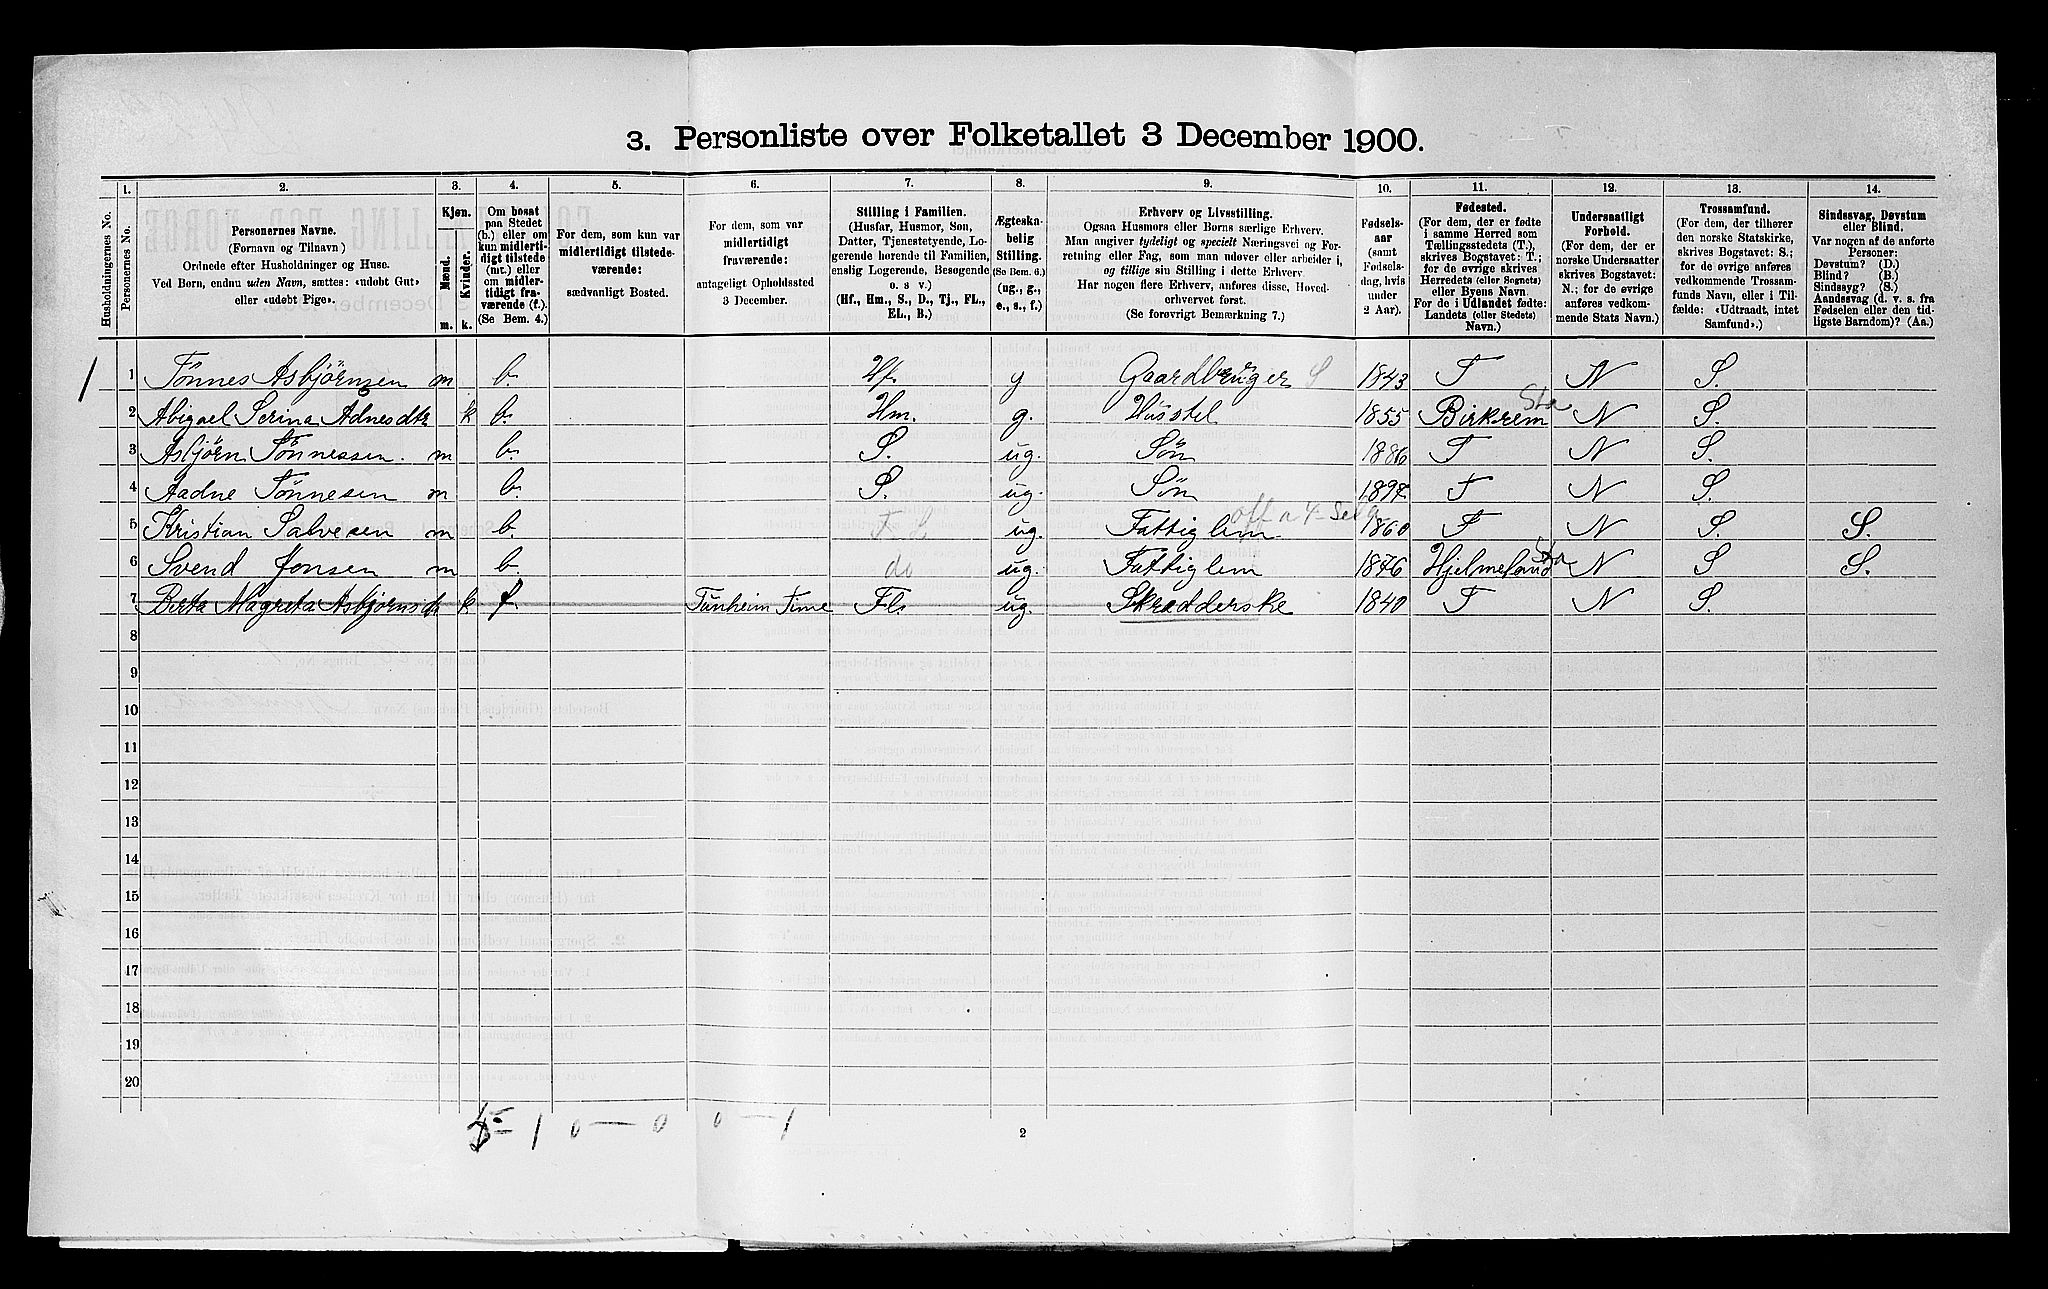 3. Personliste over Folketallet 3 December 1900.
1. 2. 3. 4. 5. 6. 7. 8. 9. 10. 11. 12. 13. 14.
Husholdningernes No.
Personernes No.
Personernes Navne.
(Fornavn og Tilnavn)
Ordnede efter Husholdninger og Huse.
Ved Børn, endnu uden Navn, sættes: «udøbt Gut»
eller «udøbt Pige».
Kjøn.
Mænd.
Kvinder.
m. k.
Om bosat
paa Stedet
(b.) eller om
kun midlerti-
digt tilstede
(mt.) eller
om midler-
tidigt fra-
værende (f.).
(Se Bem. 4.)
For dem, som kun var
midlertidigt tilstede-
værende:
sædvanligt Bosted.
For dem, som var
midlertidigt
fraværende:
antageligt Opholdssted
3 December.
Stilling i Familien.
(Husfar, Husmor, Søn,
Datter, Tjenestetyende, Lo-
gerende hørende til Familien,
enslig Logerende, Besøgende
o. s v.)
(Hf., Hm., S., D., Tj., FL.,
EL., B.)
Ægteska-
belig
Stilling.
(Se Bem. 6.)
(ug., g.,
e., s., f.)
Erhverv og Livsstilling.
Ogsaa Husmors eller Børns særlige Erhverv.
Man angiver tydeligt og specielt Næringsvei og For-
retning eller Fag, som man udøver eller arbeider i,
og tillige sin Stilling i dette Erhverv
Har nogen flere Erhverv, anføres disse, Hoved-
erhvervet først.
(Se forøvrigt Bemærkning 7.)
Fødsels-
aar
(samt
Fødsels-
dag, hvis
under
2 Aar).
Fødested.
(For dem, der er fødte
i samme Herred som
Tællingsstedets (T.),
skrives Bogstavet: T.;
for de øvrige skrives
Herredets (eller Sognets)
eller Byens Navn.
For de i Udlandet fødte:
Landets (eller Stedets)
Navn.)
Undersaatligt
Forhold.
(For dem, der er
norske Undersaatter
skrives Bogstavet:
N.; for de øvrige
anføres vedkom-
mende Stats Navn.)
Trossamfund.
(For dem, der tilhører
den norske Statskirke,
skrives Bogstavet: S.;
for de øvrige anføres
vedkommende Trossam-
funds Navn, eller i Til-
fælde: «Udtraadt, intet
Samfund».)
Sindssvag, Døvstum
eller Blind.
Var nogen af de anførte
Personer:
Døvstum? (D.)
Blind? (B.)
Sindssyg? (S.)
Aandssvag (d. v. s. fra
Fødselen eller den tid-
ligste Barndom)? (Aa.)
1 1 Tönnes Asbjörnsen m b. Hf. g Gaardbruger S 1843 T N S.
2 Abigael Serina Adnesdtr k b. Hm. g. Husstel 1855 Birkrem Sta N S.
3 Asbjörn Tönnessen. m b. S. ug. Søn 1886 T N S.
4 Aadne Tönnesen m b. S. ug. Søn 1897 T N S.
5 Kristian Salvesen m b. F. L ug. Fattiglem 1860 T N S. S.
6 Svend Jonsen m b. do ug. Fattiglem 1876 Hjelmeland Sta N S S.
7 Berta Magreta Asbjørnsdt k f. Tunheim Time FL ug. Skrædderske 1840 T N S.
8
9
10
11
12
13
14
15
16
17
18
19
20
5 - 1 0 - 0 0 - 1
2